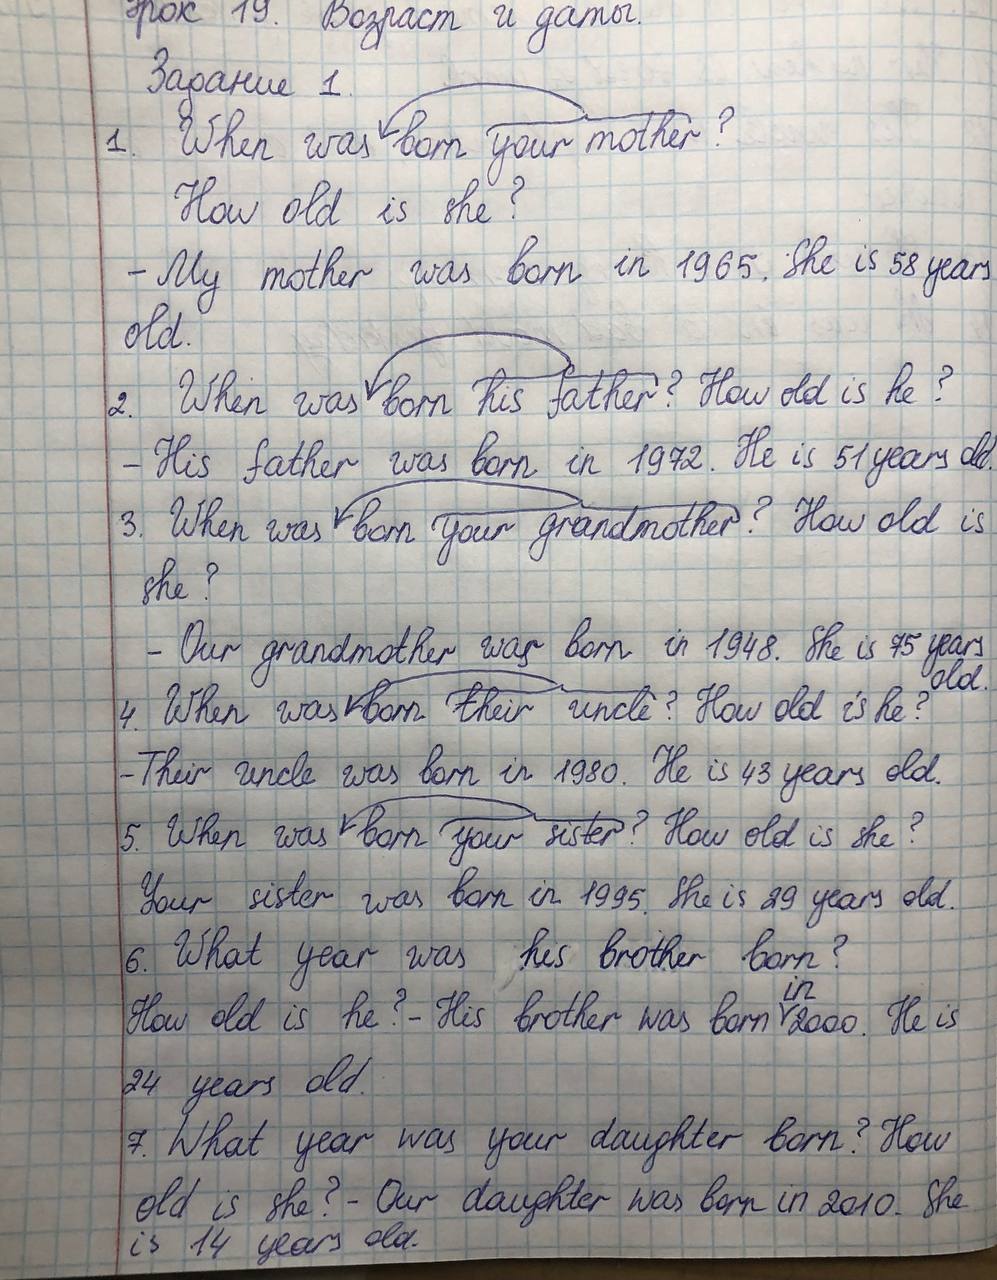 Урок 19. Возраст и даты.
Задание 1.
1. When was born your mother?
How old is she?
- My mother was born in 1965. She is 58 years
old.
2. When was born his father? How old is he?
- His father was born in 1972. He is 51 years old.
3. When was born your grandmother? How old is
she?
- Our grandmother was born in 1948. She is 75 years
old.
4. When was born their uncle? How old is he?
- Their uncle was born in 1980. He is 43 years old.
5. When was born your sister? How old is she?
Your sister was born in 1995. She is 29 years old.
6. What year was his brother born?
in
How old is he? - His brother was born 2000. He is
24 years old.
7. What year was your daughter born? How
old is she? - Our daughter was born in 2010. She
is 14 years old.